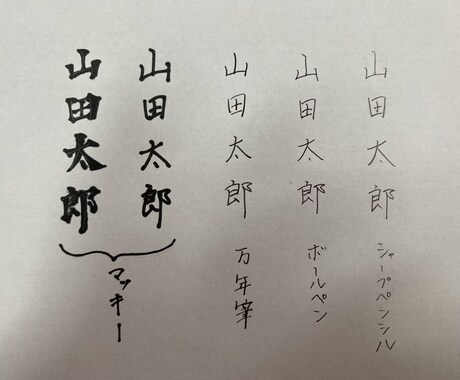 山田太郎
シャープペンシル
山田太郎
ボールペン
山田太郎
万年筆
山田太郎
山田太郎
マッキー